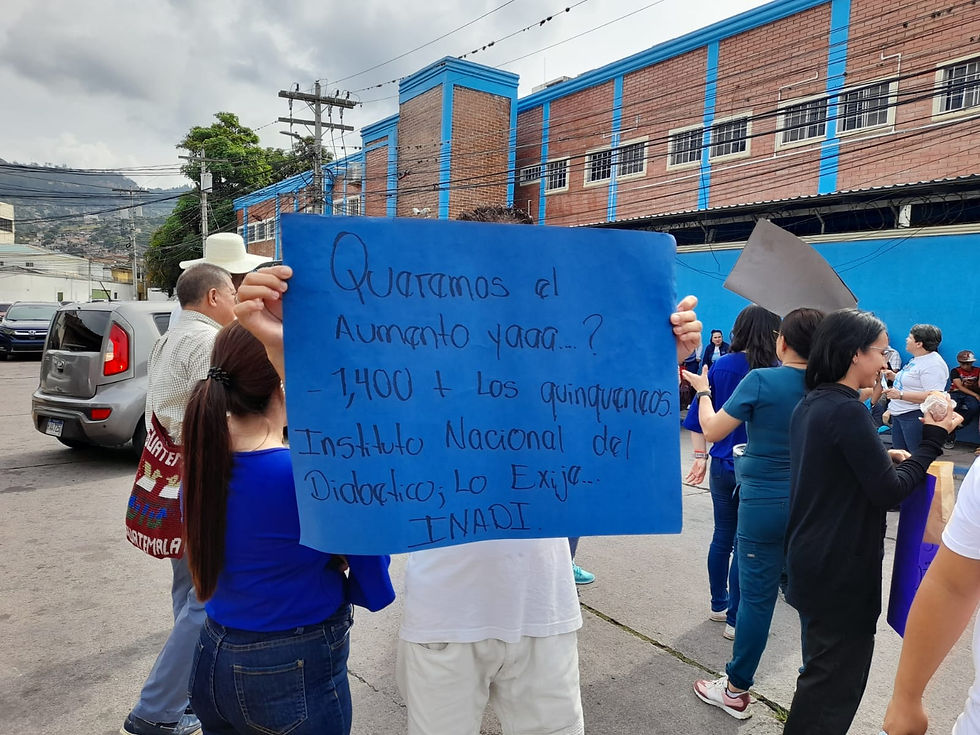 Queremos el
Aumento yaaa...?
- 1,400 + Los quinqueneos.
Instituto Nacional del
Diabetico; Lo Exije...
INADI.
GUATEMALA